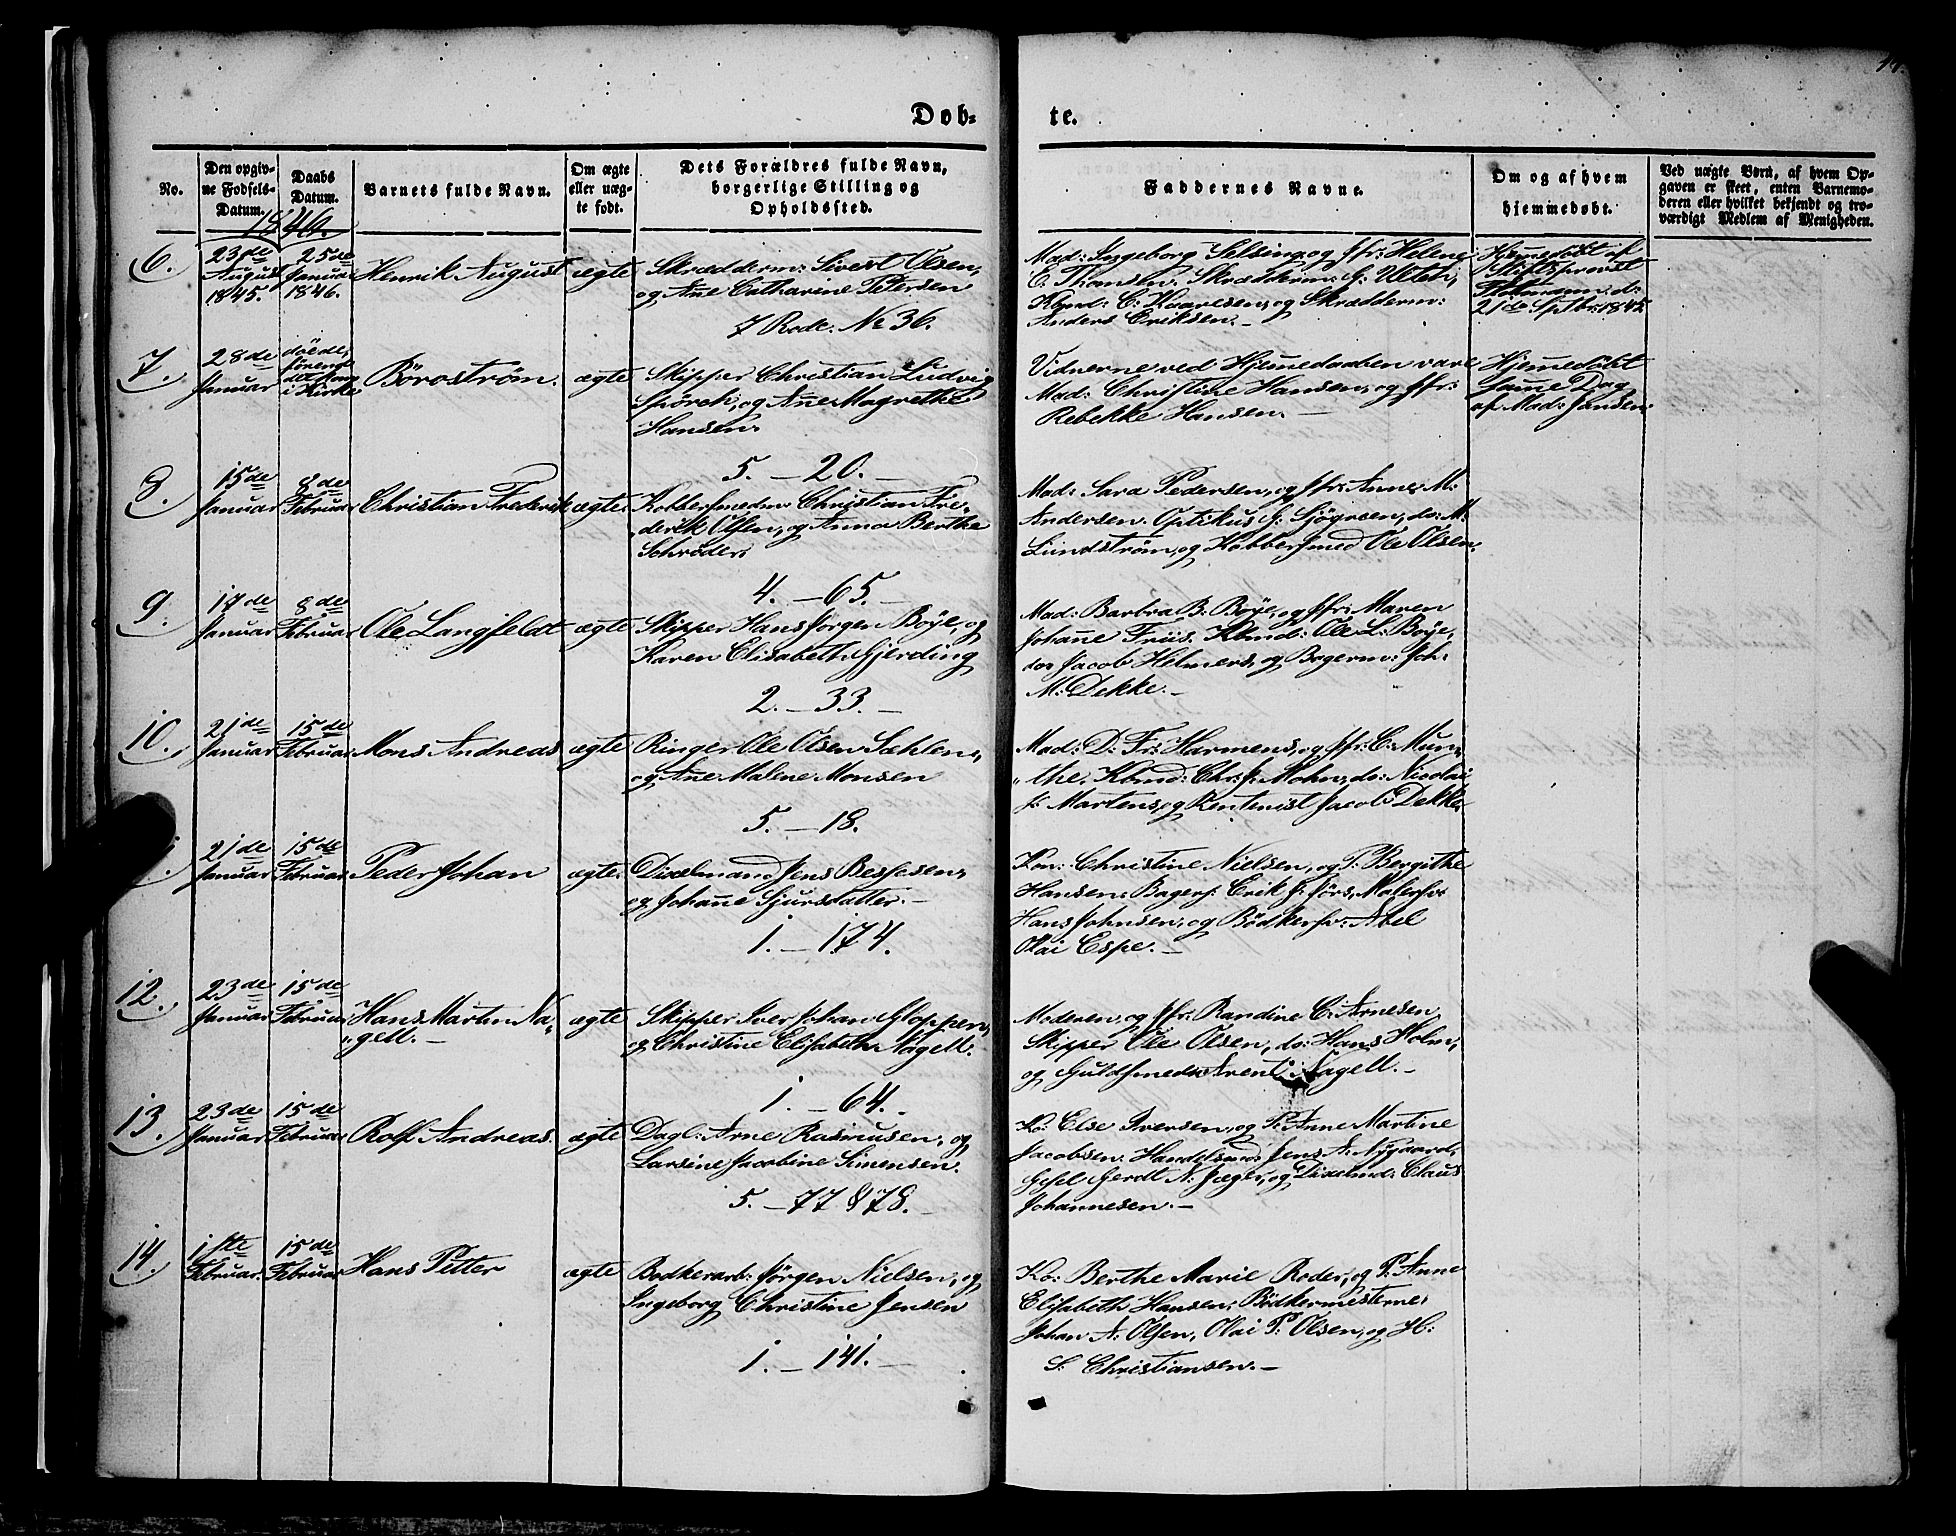 Døb- te.
No.
Den opgiv-
ne Fødsels-
Datum.
Daabs
Datum.
Barnets fulde Navn.
Om ægte
eller uæg-
te født.
Dets Forældres fulde Navn,
borgerlige Stilling og
Opholdssted.
Faddernes Navne.
Om og af hvem
hjemmedøbt.
Ved uægte Børn, af hvem Op-
gaven er skeet, enten Barnemo-
deren eller hvilket bekjendt og tro-
værdigt Medlem af Menigheden.
1846.
6.
23de
August
1845.
25de
Januar
1846.
Henrik August
ægte
Skrædderm: Sivert Olsen,
og Ane Catharine Petersen
7 Rode. No 36.
Mad: Ingeborg Selsing, og Jfr: Helene
E. Thomsen. Skrædderm: G:
Kbmd: C: Kaaresen, og Skrædderm:
Anders Eriksen.-
Hjemedøbt af
Stiftsprovst
d:
21de Septbr: 1845
7.
28de
Januar
døde,
i Kirke
Börostrøm.
ægte
Skipper Christian Ludvig
Störck, og Ane Magrethe
Hansen.
5. - 20. -
Vidnerne ved Hjemedaaben vare
Mad: Christine Hansen, og Jfr:
Rebekke Hansen. -
Hjemedöbt
same Dag
af Mad: Jansen.
8.
15de
Januar
8de
Februar
Christian Frederik
ægte.
Kobbersmedm: Christian Fre-
derik Olsen, og Anna Berthe
Schrøder.
4. - 65. -
Mad: Sara Pedersen, og Jfr: Anne M:
Andersen. Optikus G: Sjögreen, do: M:
Lundstrøm, og Kobbersmed Ole Olsen.
9.
17de
Januar
8de
Februar
Ole Langfeldt
ægte
Skipper Hans Jørgen Böye, og
Karen Elisabeth Gjerding
2. - 33. -
Mad: Barbra B: Böye, og Jfr: Maren
Johanne Friis. Kbmd: Ole L: Böye,
do: Jacob Helmers, og Bagerm: Joh:
M: Dekke. -
10.
21de
Januar
15de
Februar
Mons Andreas
ægte
Ringer Ole Olsen Sæhlen,
og Ane Malene Monsen
5. - 18.
Mad: D: Fr: Harmens, og Jfr: C: Mun-
the. Kbmd: Chr: J: Mohn, do: Nicolai
F: Martens, og Rentenist Jacob Dekke.
21de
Januar
15de
Februar
Peder Johan
ægte.
Dixelmand Jens Bessesen,
og Johane Sjursdatter. -
1. - 174.
Kon: Christine Nielsen, og P: Bergithe
Hansen. Bagers: Erik J: Jörs, Malersv:
Hans Johnsen, og Bödkersv: Abel
Olai Espe. -
12.
23de
Januar
15de
Februar
Hans Martin Na-
gell. -
ægte
Skipper Iver Johan Gloppen,
og Christine Elisabeth Nagell.
1. - 64. -
Moderen, og Jfr: Randine C: Arnesen.
Skipper Ole Olsen, do: Hans Holm,
og Guldsmed Arent Nagell. -
13.
23de
Januar
15de
Februar
Rolf Andreas.
ægte
Dagl: Arne Rasmusen, og
Larsine Jacobine Simensen.
5. - 77 & 78. -
Ko: Else Iversen, og P: Anne Martine
Jacobsen. Handelsmd: Jens A: Nygaard,
Gesel Gerdt N: Jæger, og Dixelmd: Claus
Johannesen. -
14.
1ste
Februar.
15de
Februar
Hans Petter
ægte
Bødkerarb: Jørgen Nielsen, og
Ingeborg Christine Jensen
1. - 141. -
Ko: Berthe Marie Roder, og P: Anne
Elisabeth Hansen. Bödkermesterne:
Johan A: Olsen, Olai P: Olsen, og H:
S: Christiansen. -